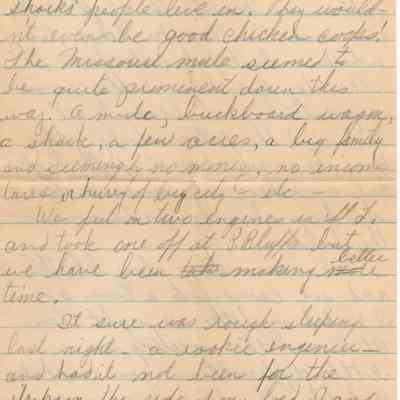 shacks people live in. They would-
n't even be good chicken coops!
The Missouri mule seemed to
be quite prominent down this
way. A mule, buckboard wagon,
a shack, a few acres, a big family
and seemingly no money, no income
taxes, hurry of big city - etc -
We put on two engines in St L.
and took one off at P. Bluffs but
we have been making better
time.
It sure was rough sleeping
last night - a rookie engineer -
and had it not been for the
the side of my bed I